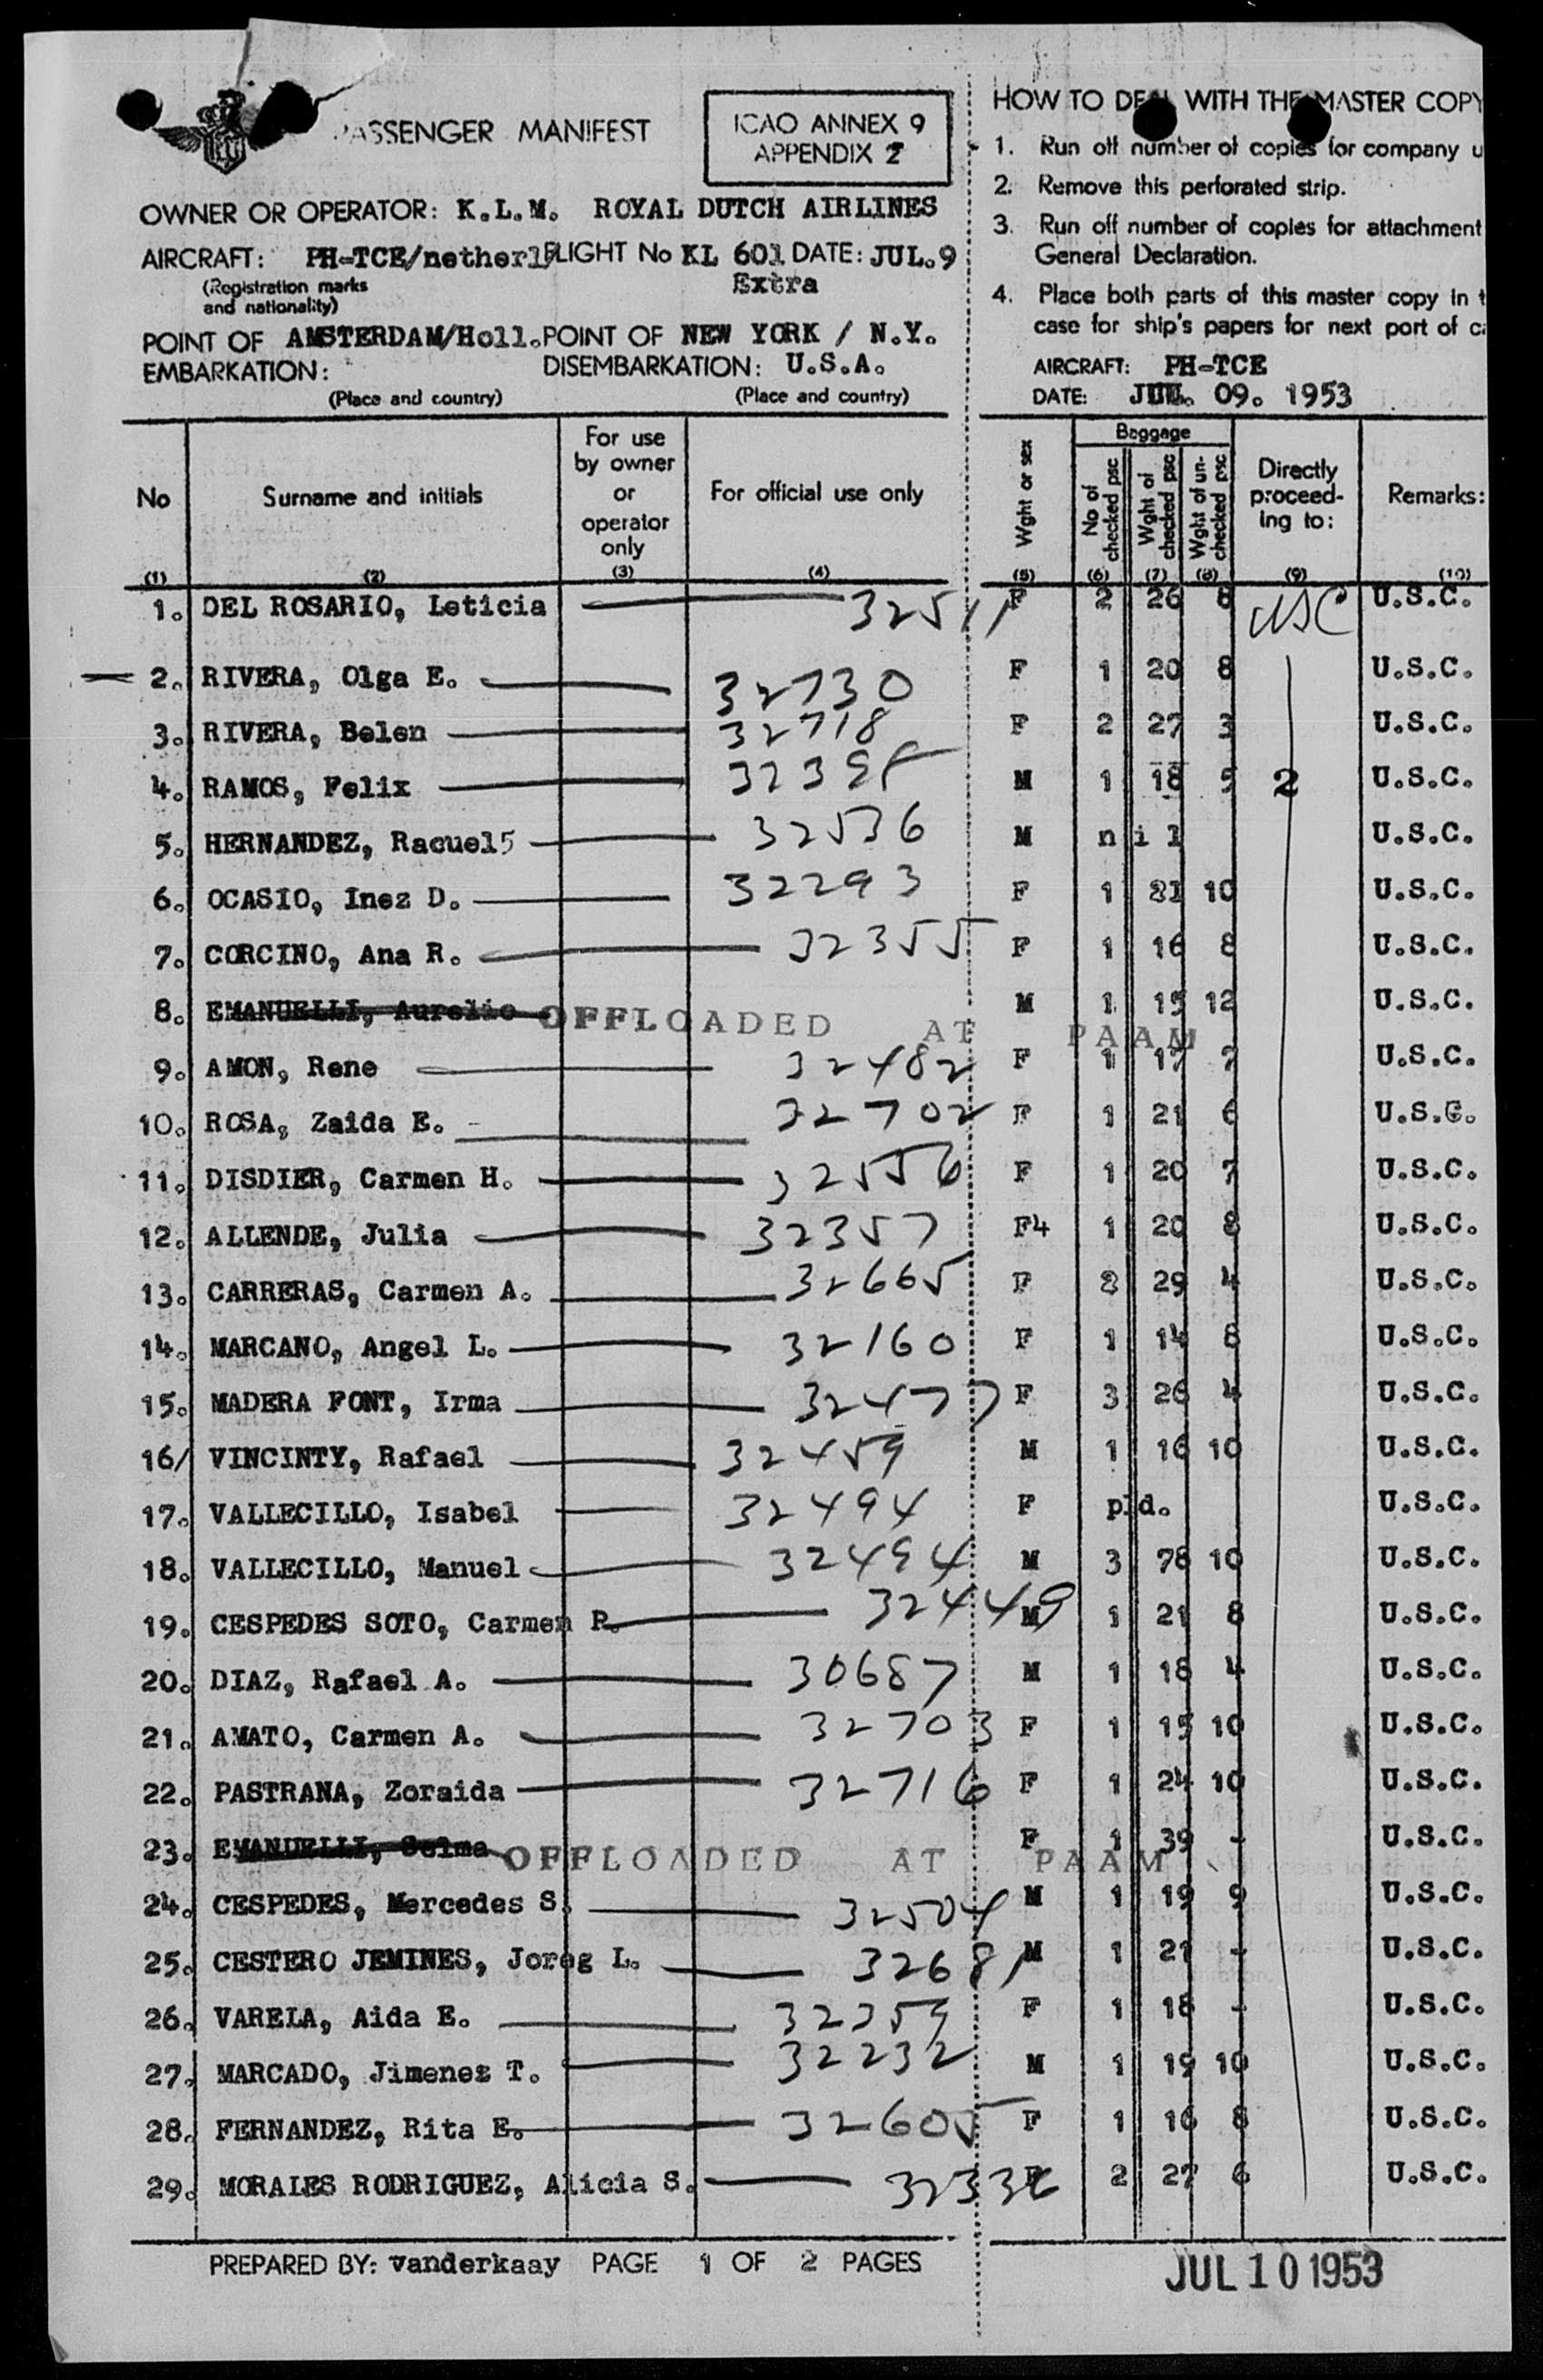 PASSENGER MANIFEST
ICAO ANNEX 9
APPENDIX 2
OWNER OR OPERATOR: K.L.M. ROYAL DUTCH AIRLINES
AIRCRAFT: PH-TCE/netherl FLIGHT No KL 601 DATE: JUL.9
(Registration marks
and nationality)
Extra
POINT OF AMSTERDAM/Holl. POINT OF NEW YORK / N.Y.
EMBARKATION: DISEMBARKATION: U.S.A.
(Place and country) (Place and country)
HOW TO DEAL WITH THE MASTER COPY
1. Run off number of copies for company u
2. Remove this perforated strip.
3. Run off number of copies for attachment
General Declaration.
4. Place both parts of this master copy in t
case for ship's papers for next port of c
AIRCRAFT: PH-TCE
DATE: JUL. 09. 1953
No Surname and initials For use by owner or operator only For official use only Wght or sex Baggage No of checked psc Wght of checked psc Wght of un-checked psc Directly proceed-ing to: Remarks:
(1) (2) (3) (4) (5) (6) (7) (8) (9) (10)
1. DEL ROSARIO, Leticia 32511 F 2 26 8 USC U.S.C.
2. RIVERA, Olga E. 32730 F 1 20 8 U.S.C.
3. RIVERA, Belen 32718 F 2 27 3 U.S.C.
4. RAMOS, Felix M 1 18 5 2 U.S.C.
5. HERNANDEZ, Racuel5 32536 M nil U.S.C.
6. OCASIO, Inez D. 32293 F 1 21 10 U.S.C.
7. CORCINO, Ana R. 32355 F 1 16 8 U.S.C.
8. EMANUELLI, Aurelio OFFLOADED AT PAAM M 1 15 12 U.S.C.
9. AMON, Rene 32482 F 1 17 7 U.S.C.
10. ROSA, Zaida E. 32702 F 1 21 6 U.S.C.
11. DISDIER, Carmen H. 32556 F 1 20 7 U.S.C.
12. ALLENDE, Julia 32357 F4 1 20 8 U.S.C.
13. CARRERAS, Carmen A. 32665 F 2 29 4 U.S.C.
14. MARCANO, Angel L. 32160 F 1 14 8 U.S.C.
15. MADERA FONT, Irma 32477 F 3 26 4 U.S.C.
16/ VINCINTY, Rafael 32459 M 1 16 10 U.S.C.
17. VALLECILLO, Isabel 32494 F pld. U.S.C.
18. VALLECILLO, Manuel 32494 M 3 78 10 U.S.C.
19. CESPEDES SOTO, Carmen R. 32449 M 1 21 8 U.S.C.
20. DIAZ, Rafael A. 30687 M 1 18 4 U.S.C.
21. AMATO, Carmen A. 32703 F 1 15 10 U.S.C.
22. PASTRANA, Zoraida 32716 F 1 24 10 U.S.C.
23. EMANUELLI, Selma OFFLOADED AT PAAM F 1 39 - U.S.C.
24. CESPEDES, Mercedes S. 32504 M 1 19 9 U.S.C.
25. CESTERO JEMINES, Joreg L. 32681 M 1 21 - U.S.C.
26. VARELA, Aida E. 32359 F 1 18 - U.S.C.
27. MARCADO, Jimenez T. 32232 M 1 19 10 U.S.C.
28. FERNANDEZ, Rita E. 32605 F 1 16 8 U.S.C.
29. MORALES RODRIGUEZ, Alicia S. F 2 27 6 U.S.C.
PREPARED BY: vanderkaay PAGE 1 OF 2 PAGES
JUL 10 1953